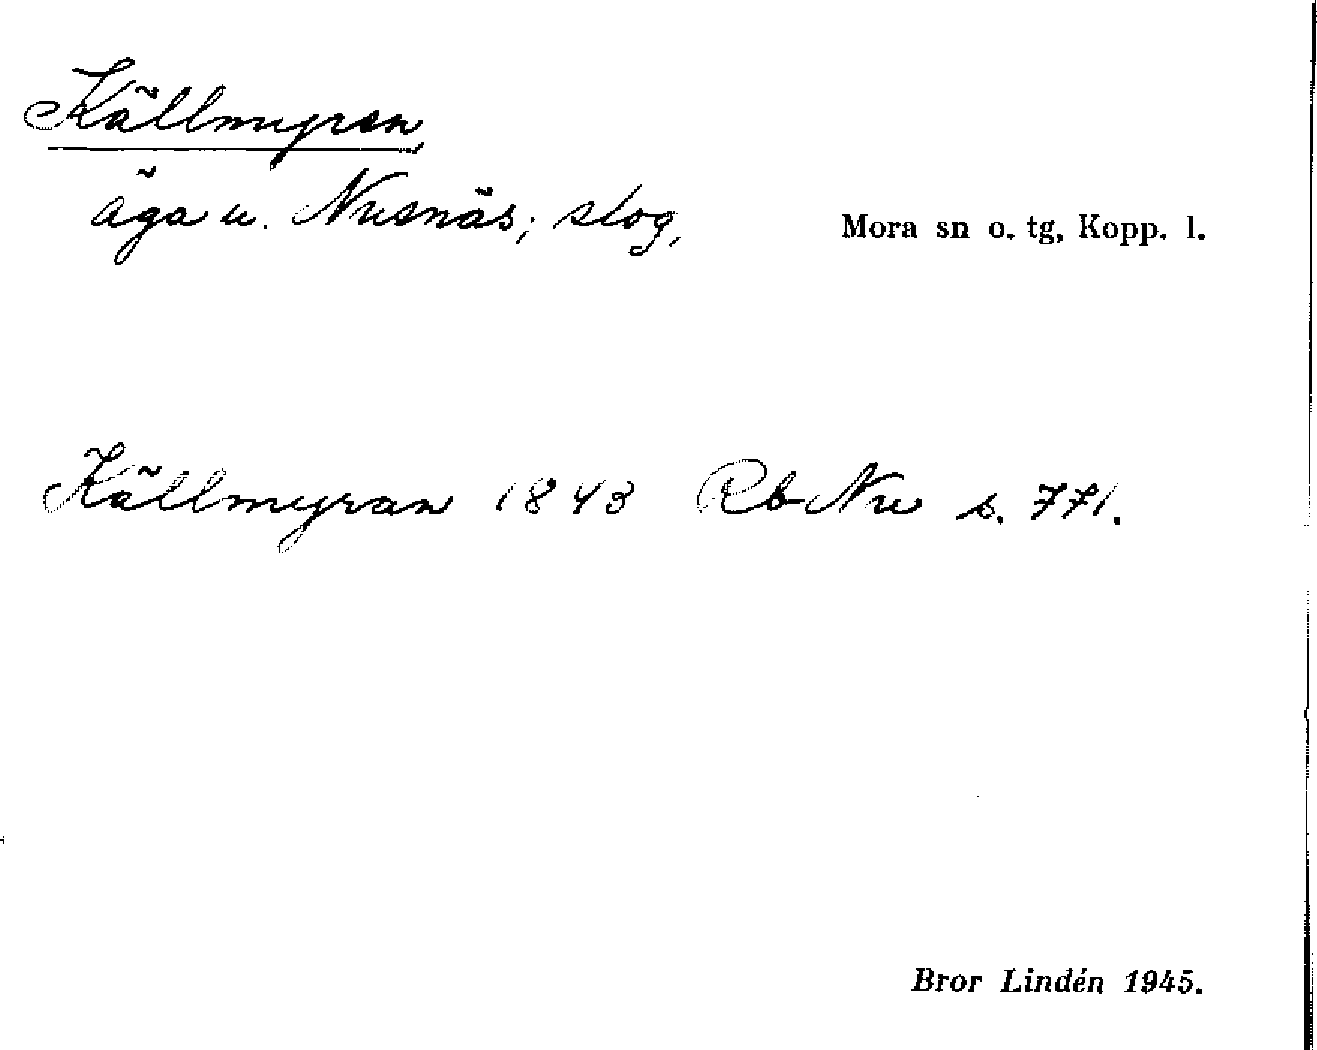 Källmyran,
äga u. Nusnäs; slog,
Mora sn o. tg, Kopp. l.
Källmyran 1843 Rb Nu s. 771.
Bror Lindén 1945.